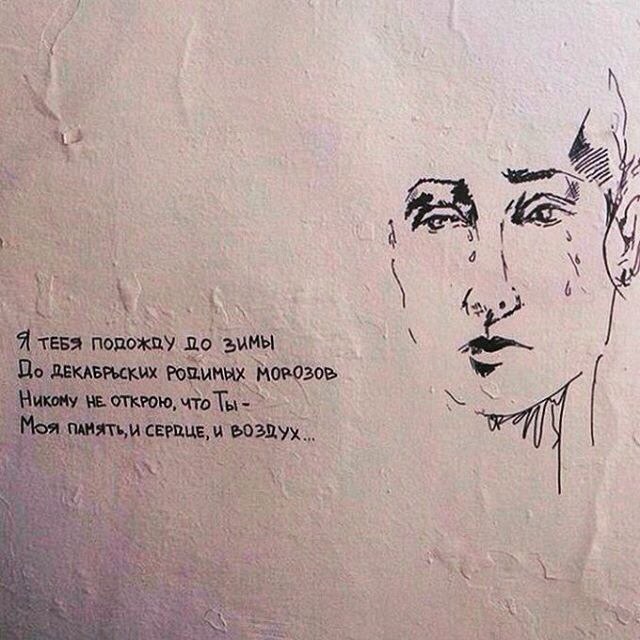 Я ТЕБЯ ПОДОЖДУ ДО ЗИМЫ
ДО ДЕКАБРЬСКИХ РОДИМЫХ МОРОЗОВ
НИКОМУ НЕ ОТКРОЮ, ЧТО ТЫ -
МОЯ ПАМЯТЬ, И СЕРДЦЕ, И ВОЗДУХ...